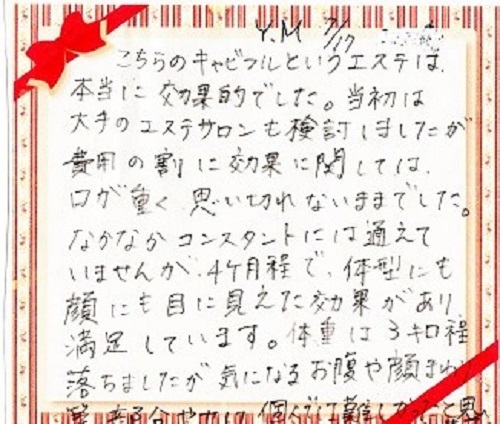 Y.M 7/17
こちらのキャビフルというエステは、
本当に効果的でした。当初は
大手のエステサロンも検討しましたが
費用の割に効果に関しては、
口が重く思い切れないままでした。
なかなかコンスタントには通えて
いませんが、4ケ月程で、体型にも
顔にも目に見えた効果があり
満足しています。体重は3キロ程
落ちましたが気になるお腹や顔まわり